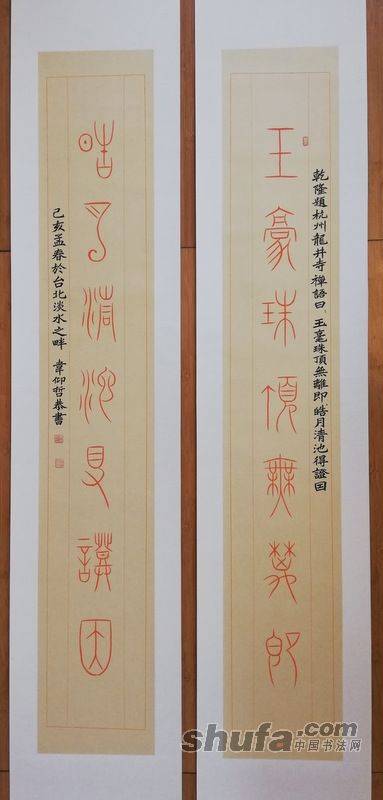 乾隆題杭州龍井寺 禪語曰、玉毫珠頂無離即 皓月清池得證因
玉毫珠頂無離即
皓月清池得證因
己亥孟春於台北淡水之畔 韋仰哲恭書
shufa.com
中国书法网